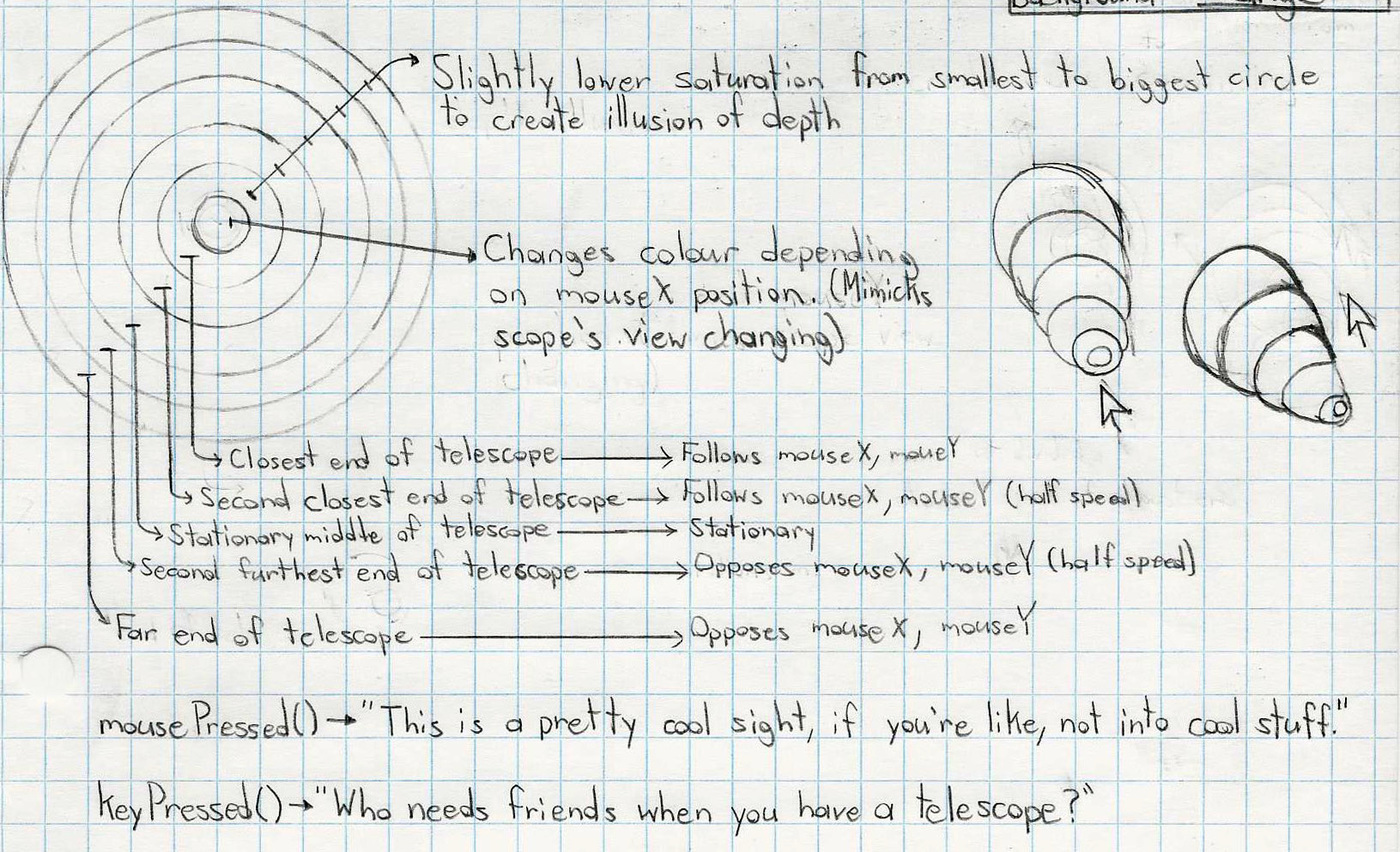 Background
Slightly lower saturation from smallest to biggest circle
to create illusion of depth
Changes colour depending
on mouseX position. (Mimicks
scope's view changing)
Closest end of telescope → Follows mouseX, moueY
Second closest end of telescope → Follows mouseX, mouseY (half speed)
Stationary middle of telescope → Stationary
Second furthest end of telescope → Opposes mouseX, mouseY (half speed)
Far end of telescope → Opposes mouseX, mouseY
mousePressed() → "This is a pretty cool sight, if you're like, not into cool stuff."
keyPressed() → "Who needs friends when you have a telescope?"